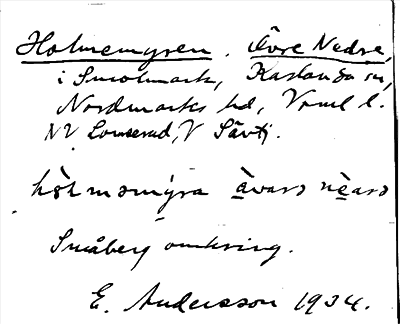 Holmemyren, Övre, Nedre,
i Smolmark, Karlanda sn,
Nordmarks hd, Vrml l.
NV Lomserud, V Sävtj.
hòlməmy̆ra ä̀vərə nèərə
Småberg omkring.
E. Andersson 1934.